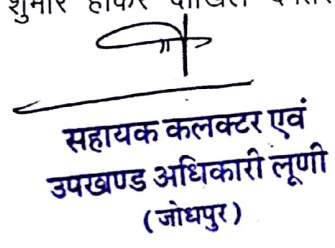 शुमार होकर दाखिल
सहायक कलक्टर एवं
उपखण्ड अधिकारी लूणी
(जोधपुर)